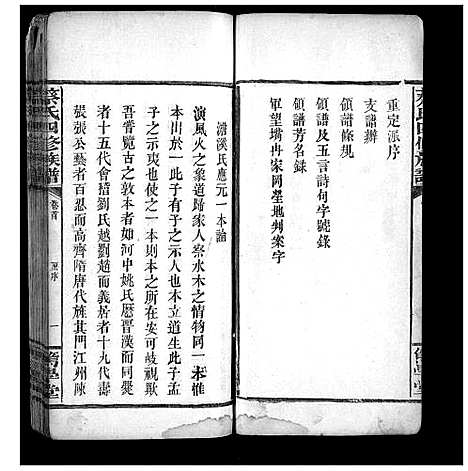 重定派序
支譜辦
領譜條規
領譜及五言詩句字號錄
領譜芳名錄
軍望壻冉家岡塋地判案字
蔡氏四修族譜
濟溪氏應元一本論
演風火之象道歸家人察水木之情物同一本惟
本山於一此子有之示人也木立道生此子孟
子之示夷也使之一本則本之所在安可岐視哉
吾嘗覽古之敦本者如河中姚氏歷晉漢而同爨
者十五代會稽劉氏越劉趙而義居者十九代壽
張張公藝者百忍而高齊隋唐代旌其門江州陳
蔡氏四修族譜
卷首
一